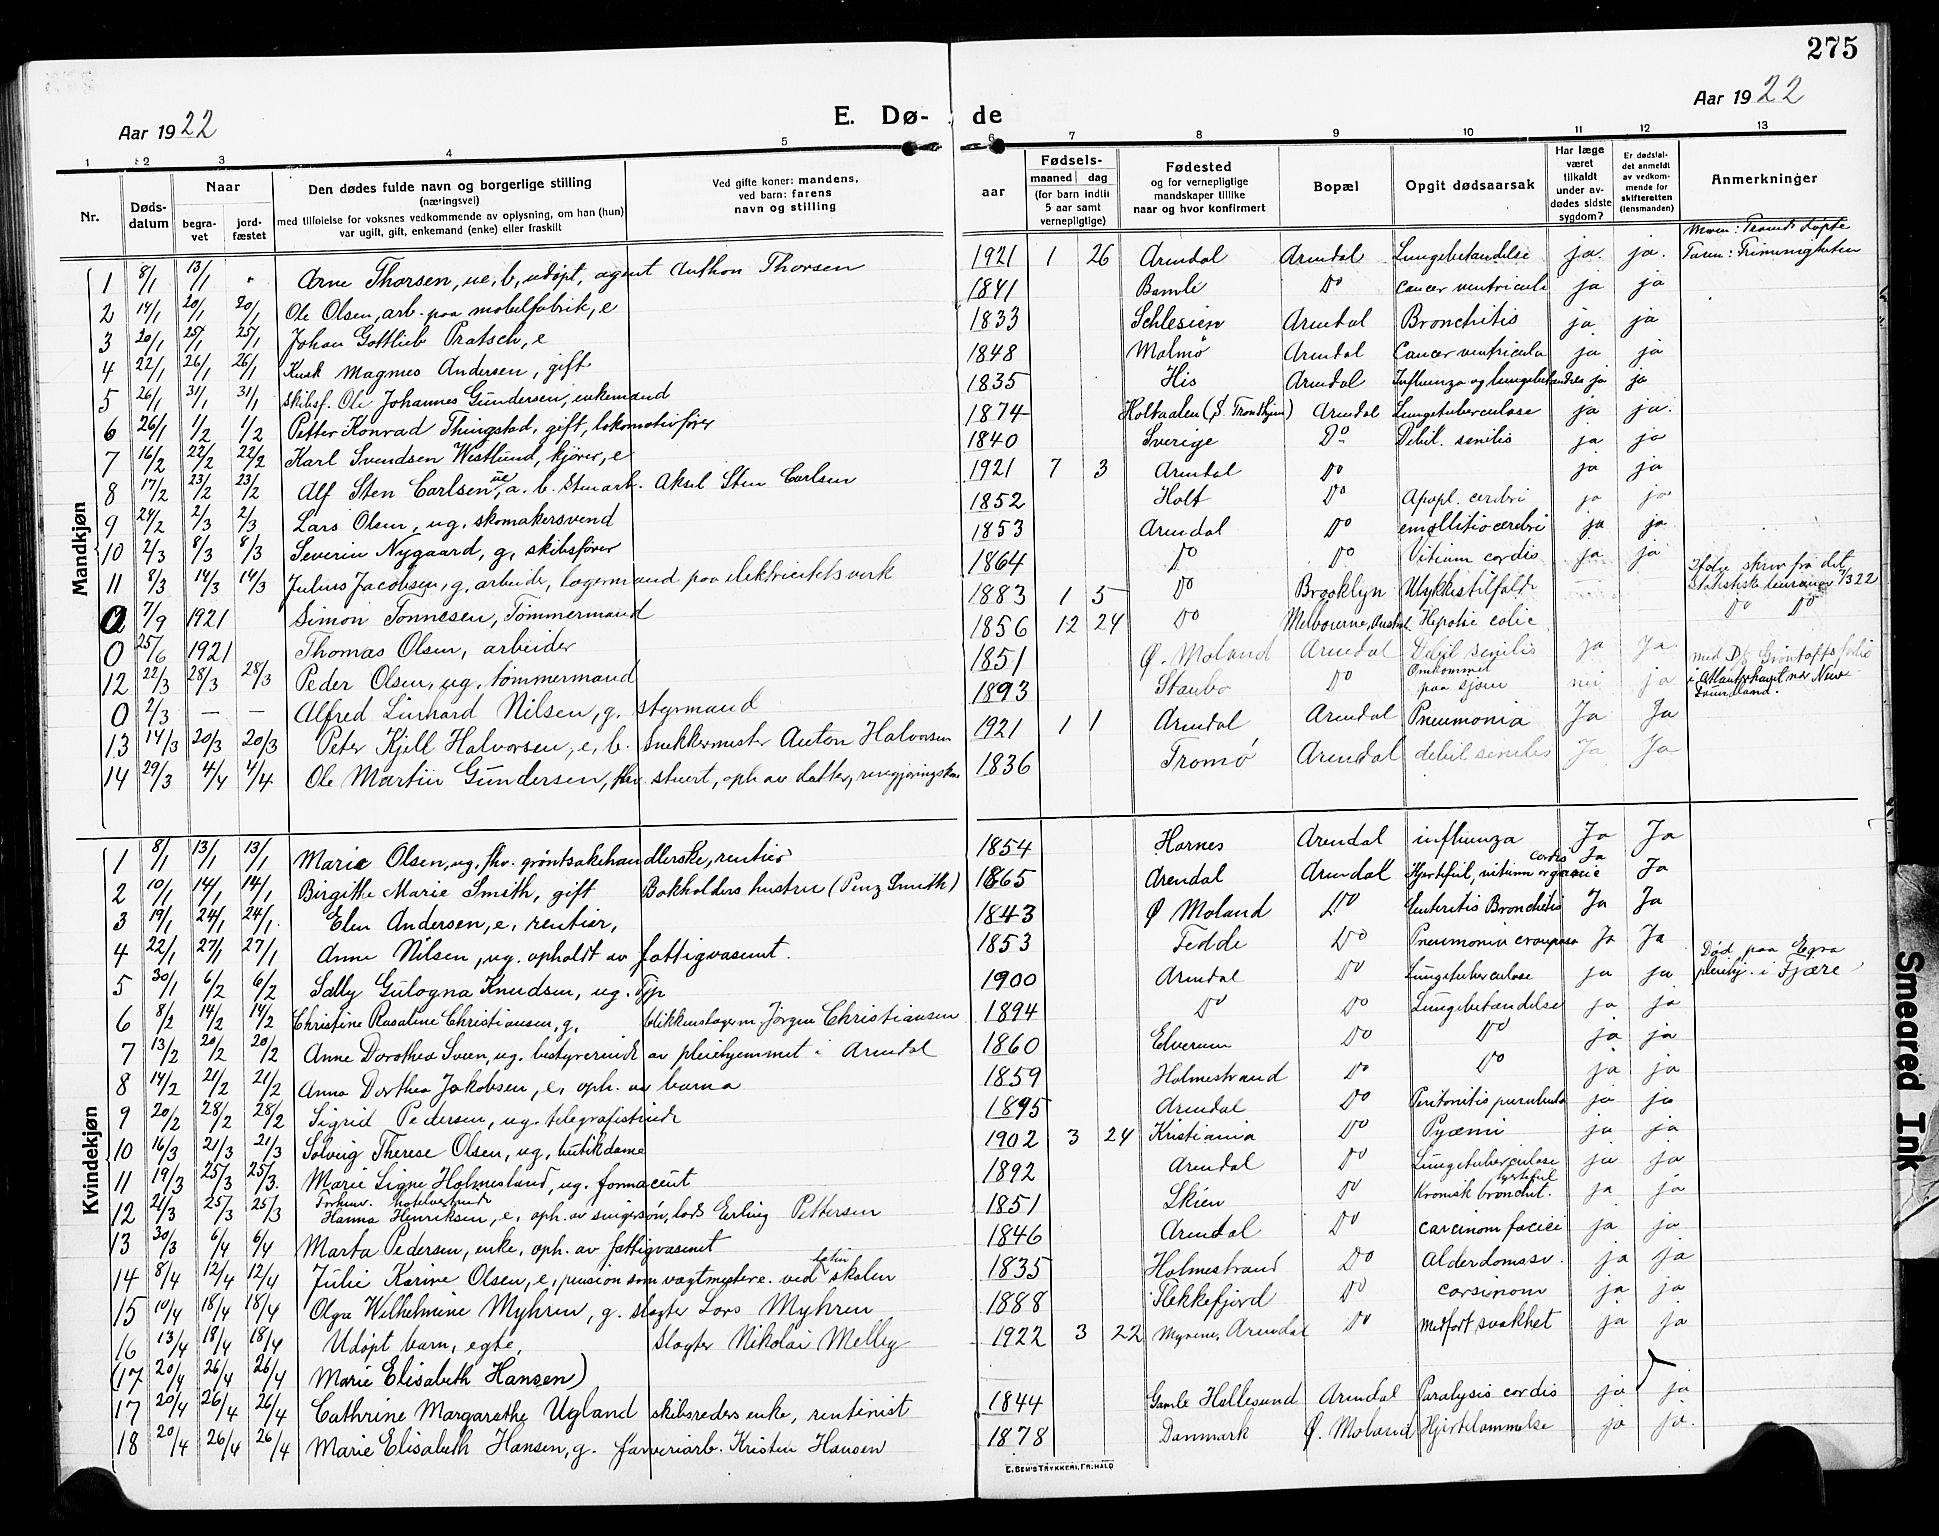 275
Aar 1922
E. Dø-
de
Aar 1922
1 2 3 4 5 6 7 8 9 10 11 12 13
Nr.
Døds-
datum
Naar
begra-
vet
jord-
fæstet
Den dødes fulde navn og borgerlige stilling
(næringsvei)
med tilføielse for voksnes vedkommende av oplysning, om han (hun)
var ugift, gift, enkemand (enke) eller fraskilt
Ved gifte koner: mandens,
ved barn: farens
navn og stilling
aar
Fødsels-
maaned dag
(for barn indtil
5 aar samt
vernepligtige)
Fødested
og for vernepligtige
mandskaper tillike
naar og hvor konfirmert
Bopæl
Opgit dødsaarsak
Har læge
været
tilkaldt
under av-
dødes sidste
sygdom?
Er dødsfal-
det anmeldt
av vedkom-
mende for
skifteretten
(lensmanden)
Anmerkninger
Mandkjøn
1 8/1 13/1 " Arne Thorsen, ue, b, udøpt, agent Anthon Thorsen 1921 1 26 Arendal Arendal Lungebetændelse ja. ja.
2 14/1 20/1 20/1 Ole Olsen, arb. paa møbelfabrik, e 1841 Bamle Do Cancer ventriculi ja ja
3 20/1 25/1 25/1 Johan Gottlieb Pratsch, e 1833 Schlesien Arendal Bronchitis ja ja
4 22/1 26/1 26/1 Kusk Magnus Andersen, gift 1848 Malmø Arendal Cancer ventricula ja ja
5 26/1 31/1 31/1 Skibsf. Ole Johannes Gundersen, enkemand 1835 His Arendal Influenza og lungebetændelse ja ja
6 26/1 1/2 1/2 Petter Konrad Thingstad, gift, lokomotivfører 1874 Holtaalen (S. Trondhjem) Arendal Lungetuberculose ja ja.
7 16/2 22/2 22/2 Karl Svendsen Westlund, kjører, e 1840 Sverige Do Debil. senilis ja ja
8 17/2 23/2 23/2 Alf Sten Carlsen, ue, a. b. Stenarb. Aksel Sten Carlsen 1921 7 3 Arendal Do ja ja
9 24/2 2/3 2/3 Lars Olsen, ug, skomakersvend 1852 Holt Do Apopl. cerebri ja ja
10 2/3 8/3 8/3 Severin Nygaard, g, skibsfører 1853 Arendal Do emollitio cerebri ja ja
11 8/3 14/3 14/3 Julius Jacobsen, g, arbeider, lagermand paa elektricitetsverk 1864 Do Do Vitium cordis ja ja
0 7/9 1921 Simon Tonnesen, Tømmermand 1883 1 5 Do Brooklyn Ulykkestilfælde
0 25/6 1921 Thomas Olsen, arbeider 1856 12 24 Do Melbourne, Austral. Hepatic colic Do Do
12 22/3 28/3 28/3 Peder Olsen, ug, tømmermand 1851 Ø. Moland Arendal Debil senilis ja Ja
0 2/3 — — Alfred Linhard Nilsen, g. styrmand 1893 Staubø Do Omkommet paa sjøen nei ja
13 14/3 20/3 20/3 Peter Kjell Halvorsen, e, b. Snekkermester Anton Halvorsen 1921 1 1 Arendal Arendal Pneumonia Ja Ja
14 29/3 4/4 4/4 Ole Martin Gundersen, fhv. stuert, oph av datter, 1836 Tromø Arendal debil senilis Ja Ja
Kvindekjøn
1 8/1 13/1 13/1 Marie Olsen, ug, fhv. grøntsakehandlerske, rentier 1854 Hornes Arendal influenza Ja Ja
2 10/1 14/1 14/1 Birgithe Marie Smith, gift Bokholders hustru (Penz Smith) 1865 Arendal Arendal Hjertefeil, vitium cordis organic Ja Ja
3 19/1 24/1 24/1 Elen Andersen, e, rentier, 1843 Ø Moland Do Enteritis Bronchitis Ja Ja
4 22/1 27/1 27/1 Anne Nilsen, ug. opholdt av fattigvæsenet. 1853 Fedde Do Pneumonia crouposa Ja Ja
5 30/1 6/2 6/2 Sally Gulogna Knudsen, ug. Tjp 1900 Arendal Do Lungetuberculose ja ja Død paa Egra pleiehj. i Fjære
6 8/2 14/2 14/2 Christine Rosaline Christiansen, g, blikkenslagerm. Jørgen Christiansen 1894 Do Do Lungebetændelse ja ja
7 13/2 20/2 20/2 Anne Dorothea Sveen, ug. bestyrerinde av pleiehjemmet i Arendal 1860 Elverum Do Do ja ja
8 14/2 21/2 21/2 Anna Dorthea Jakobsen, e, oph. av barna 1859 Holmestrand Do Do ja ja
9 20/2 28/2 28/2 Sigrid Pedersen, ug. telegrafistinde 1895 Arendal Do Peritonitis purulenta ja ja
10 16/3 21/3 21/3 Solveig Therese Olsen, ug, butikdame 1902 3 24 Kristiania Do Pyæmi ja ja
11 19/3 25/3 25/3. Marie Signe Holmesland, ug. farmaceut 1892 Arendal Do Lungetuberculose ja ja
12 21/3 25/3 25/3 Forhenv. hotelvertinde Hanna Henriksen, e, oph. av svigersøn, lods Erling Pettersen 1851 Skien Do Kronisk bronchit. hjertefeil ja ja
13 30/3 6/4 6/4 Marta Pedersen, enke, oph. av fattigvæsenet 1846 Arendal Do carcinom faciei ja ja
14 8/4 12/4 12/4 Julie Karine Olsen, e, pension som vagtmestere. ved latin skolen 1835 Holmestrand Do Alderdomssv. ja ja
15 10/4 18/4 18/4 Olga Wilhelmine Myhren, g. slagter Lars Myhren 1888 Flekkefjord Do carsinom ja ja
16 13/4 18/4 18/4 Udøpt barn, egte, Slagter Nikolai Melby 1922 3 22 Myrene, Arendal Do Medfødt svakhet ja ja
(17 20/4 26/4 26/4 Marie Elisabeth Hansen)
17 20/4 26/4 26/4 Cathrine Margarethe Ugland skibsreders enke, rentenist 1844 Gamle Hellesund Arendal Paralysis cordis ja ja
18 20/4 26/4 26/4 Marie Elisabeth Hansen, g. farveriarb. Kristen Hansen 1878 Danmark Ø. Moland Hjertelammelse ja ja.
E. SEM'S TRYKKERI, FR.HALD
Smeared Ink